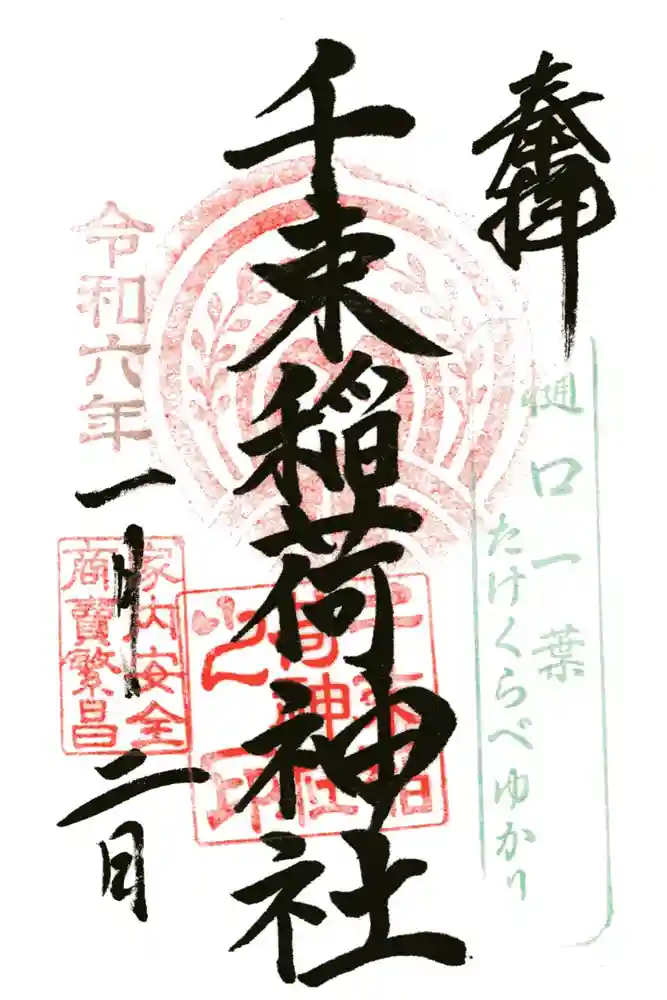 奉拝
樋口一葉
たけくらべゆかり
千束稲荷神社
千束稲
荷神社
之印
令和六年
一月二日
家内安全
商賣繁昌